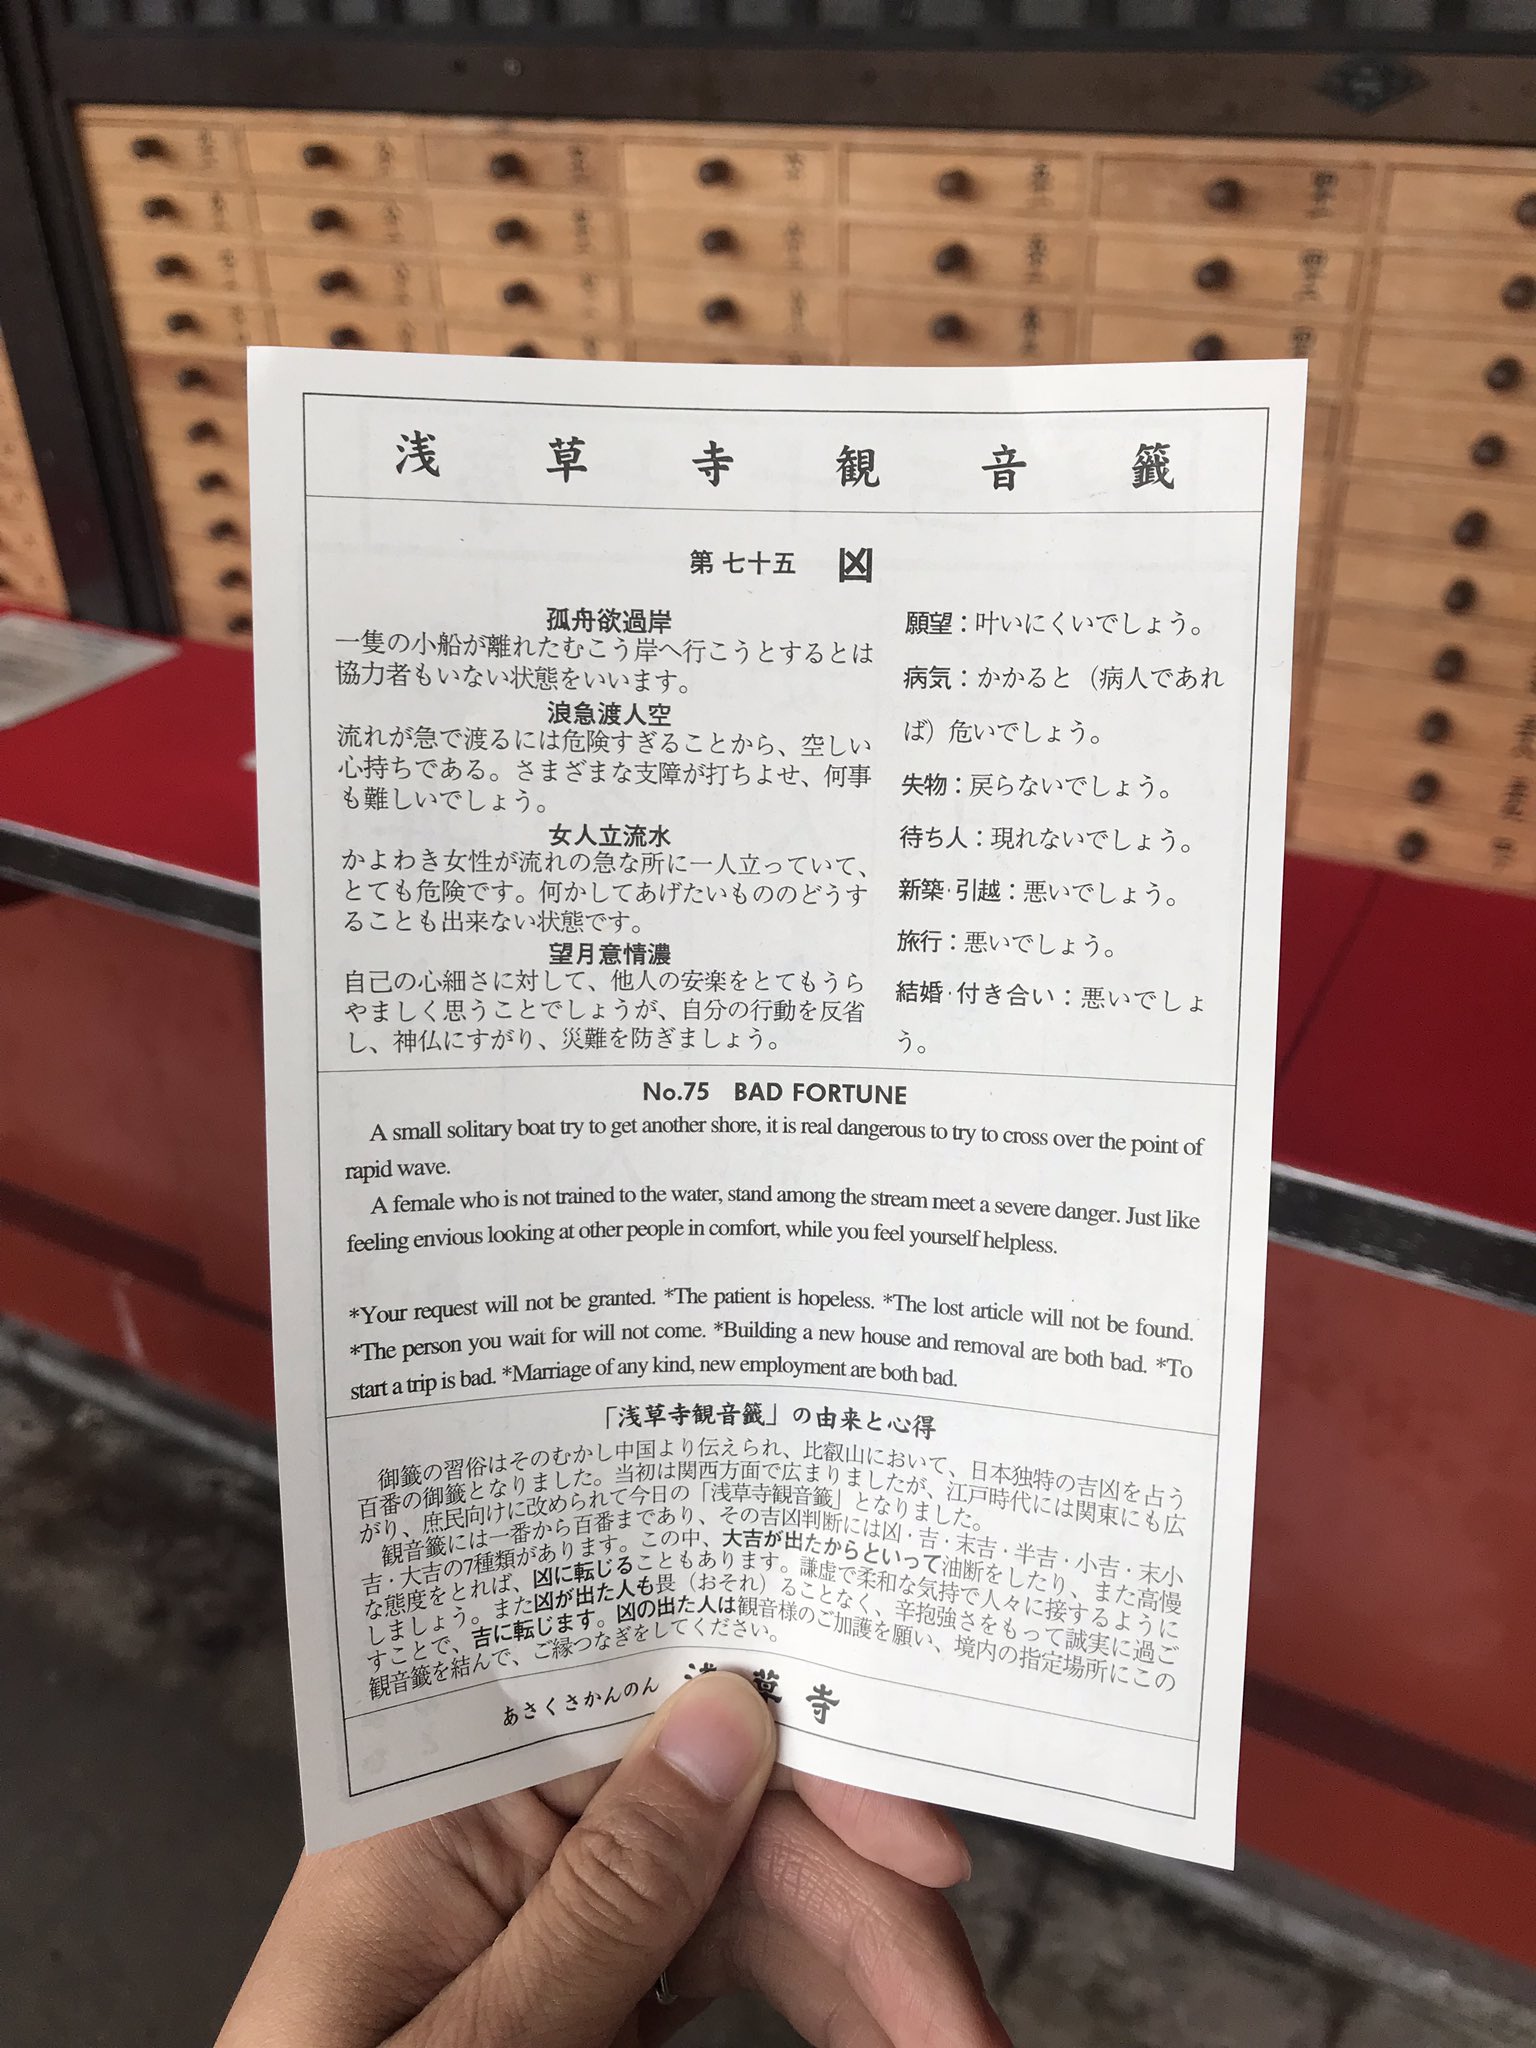 浅草寺観音籤
第七十五 凶
孤舟欲過岸
一隻の小船が離れたむこう岸へ行こうとするとは
協力者もいない状態をいいます。
浪急渡人空
流れが急で渡るには危険すぎることから、空しい
心持ちである。さまざまな支障が打ちよせ、何事
も難しいでしょう。
女人立流水
かよわき女性が流れの急な所に一人立っていて、
とても危険です。何かしてあげたいもののどうす
ることも出来ない状態です。
望月意情濃
自己の心細さに対して、他人の安楽をとてもうら
やましく思うことでしょうが、自分の行動を反省
し、神仏にすがり、災難を防ぎましょう。
願望：叶いにくいでしょう。
病気：かかると（病人であれ
ば）危いでしょう。
失物：戻らないでしょう。
待ち人：現れないでしょう。
新築・引越：悪いでしょう。
旅行：悪いでしょう。
結婚・付き合い：悪いでしょ
う。
No.75 BAD FORTUNE
A small solitary boat try to get another shore, it is real dangerous to try to cross over the point of
rapid wave.
A female who is not trained to the water, stand among the stream meet a severe danger. Just like
feeling envious looking at other people in comfort, while you feel yourself helpless.
*Your request will not be granted. *The patient is hopeless. *The lost article will not be found.
*The person you wait for will not come. *Building a new house and removal are both bad. *To
start a trip is bad. *Marriage of any kind, new employment are both bad.
「浅草寺観音籤」の由来と心得
御籤の習俗はそのむかし中国より伝えられ、比叡山において、日本独特の吉凶を占う
百番の御籤となりました。当初は関西方面で広まりましたが、江戸時代には関東にも広
がり、庶民向けに改められて今日の「浅草寺観音籤」となりました。
観音籤には一番から百番まであり、その吉凶判断には凶・吉・末吉・半吉・小吉・末小
吉・大吉の7種類があります。この中、大吉が出たからといって油断をしたり、また高慢
な態度をとれば、凶に転じることもあります。謙虚で柔和な気持で人々に接するように
しましょう。また凶が出た人も畏（おそれ）ることなく、辛抱強さをもって誠実に過ご
すことで、吉に転じます。凶の出た人は観音様のご加護を願い、境内の指定場所にこの
観音籤を結んで、ご縁つなぎをしてください。
あさくさかんのん 浅草寺